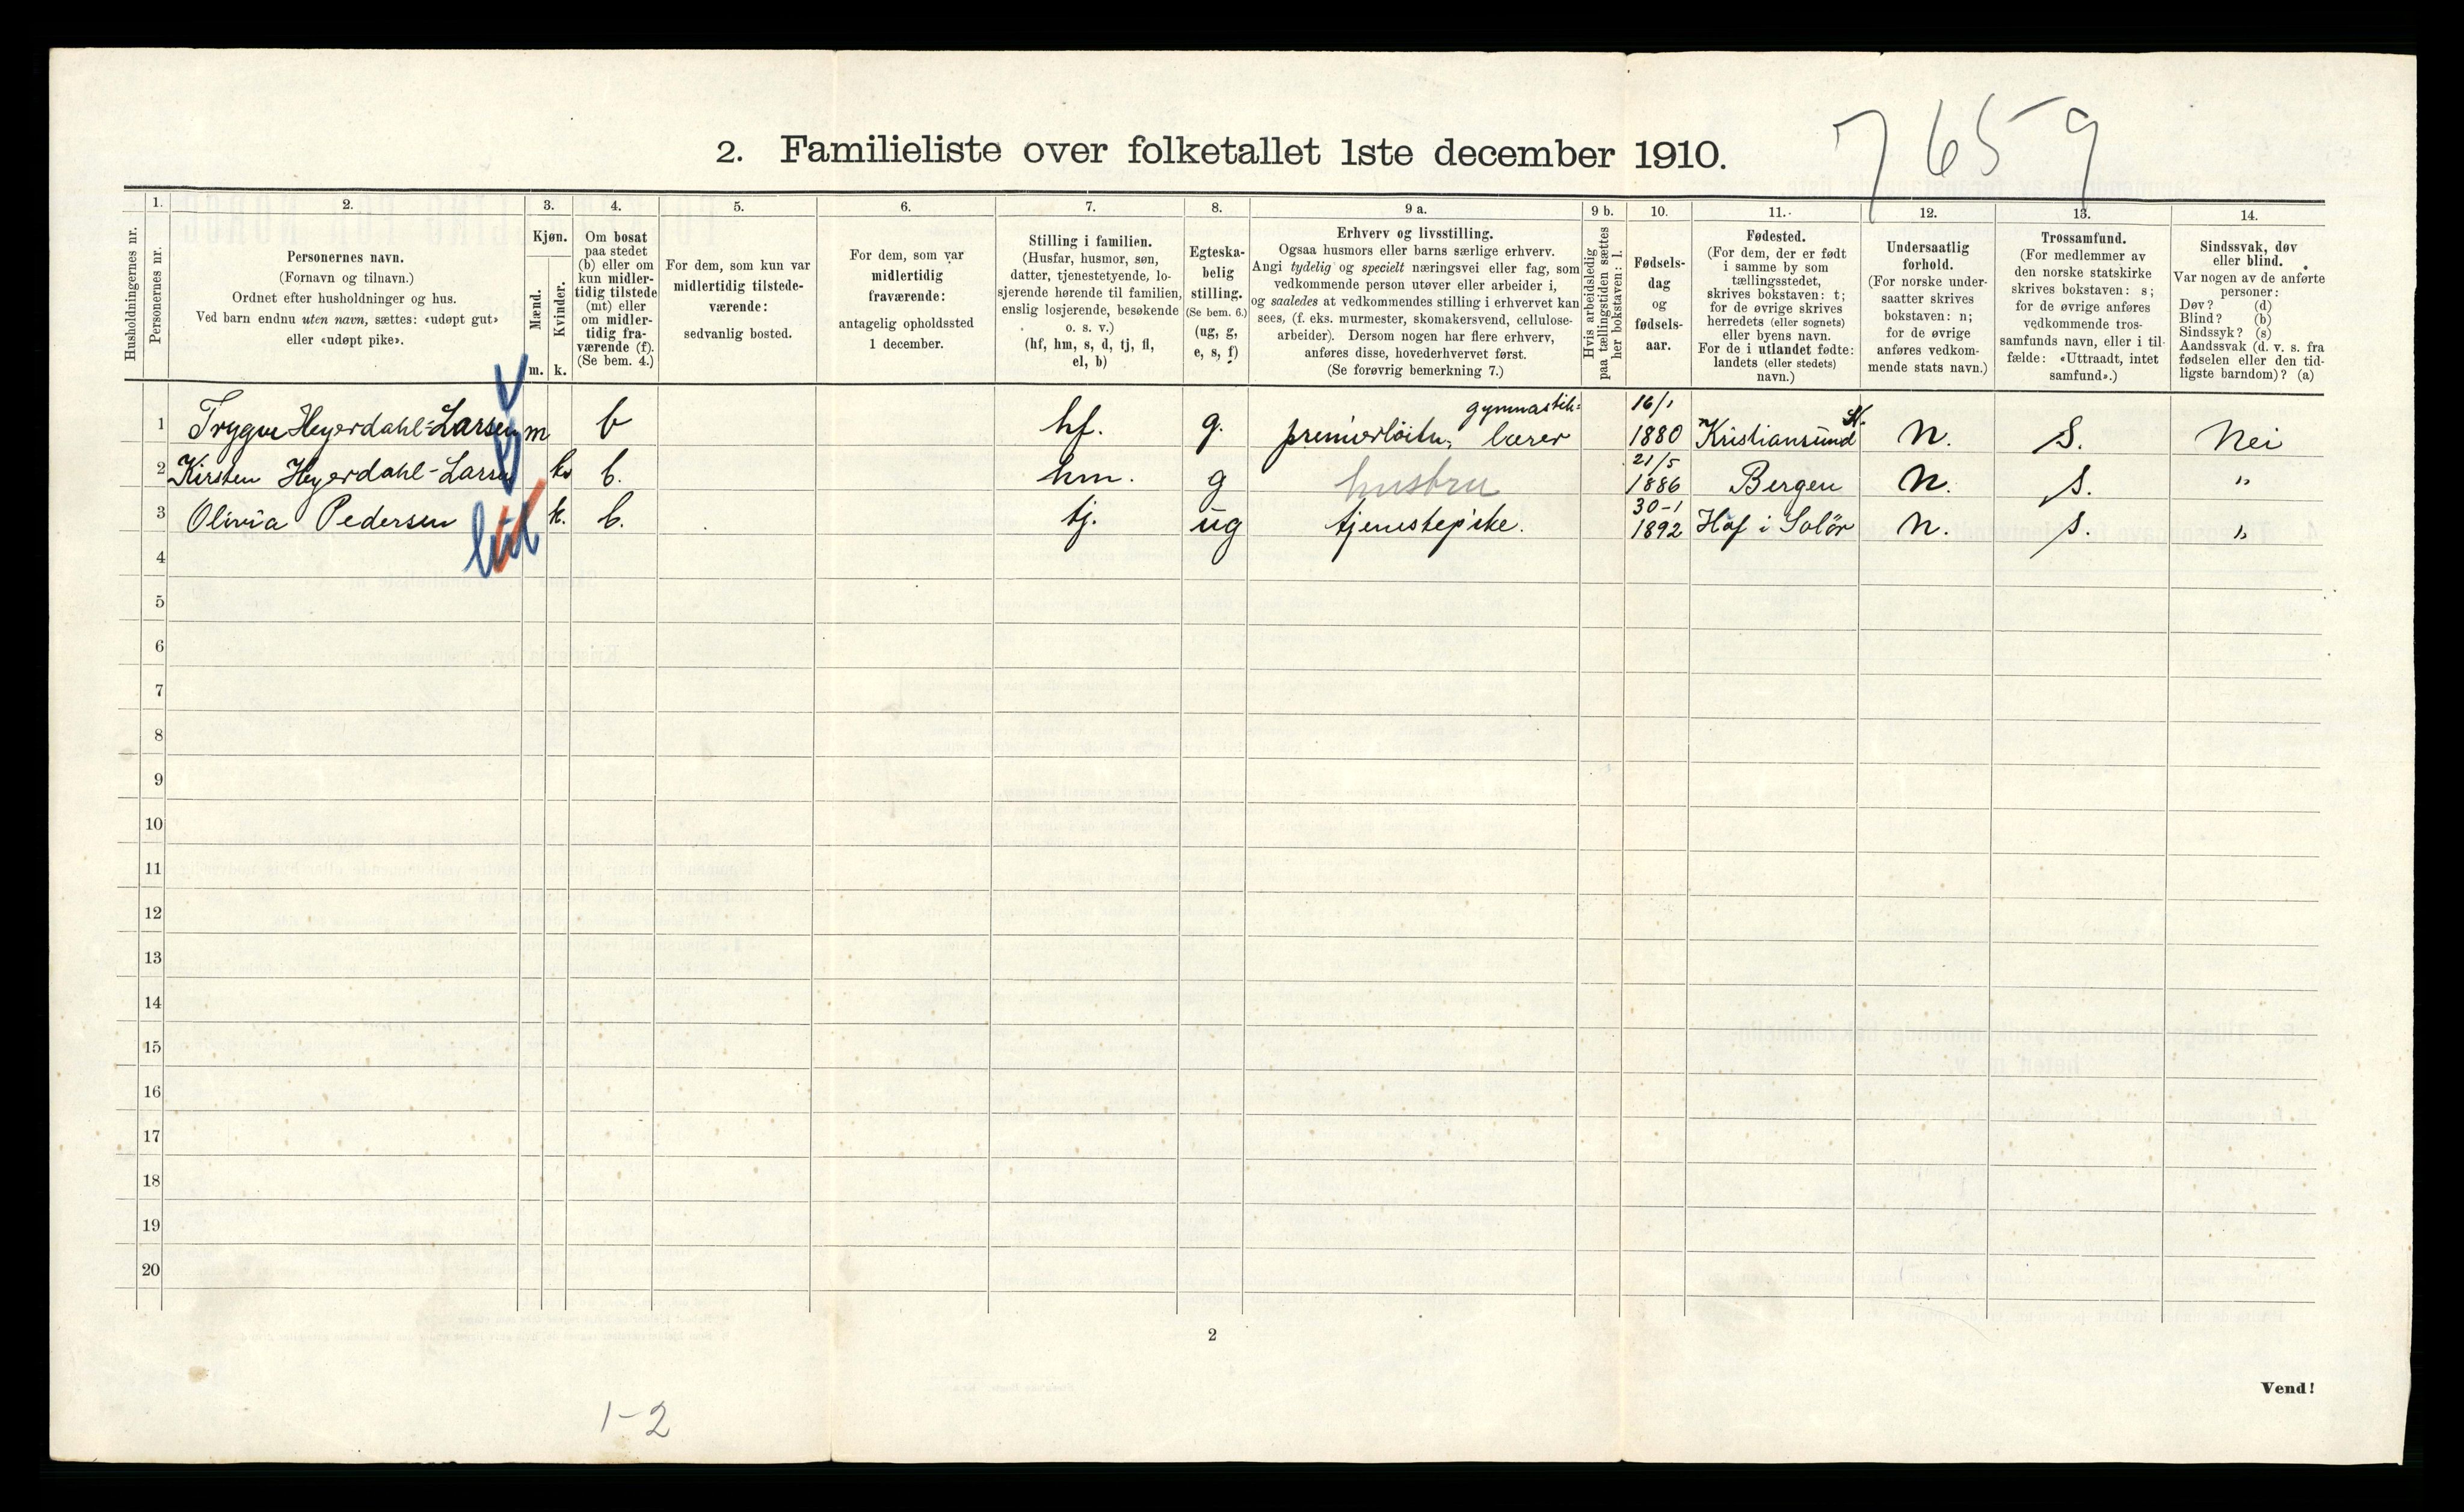 7659
2. Familieliste over folketallet 1ste december 1910.
Husholdningernes nr.
1.
Personernes nr.
2.
Personernes navn.
(Fornavn og tilnavn.)
Ordnet efter husholdninger og hus.
Ved barn endnu uten navn, sættes: «udøpt gut»
eller «udøpt pike».
3.
Kjøn.
Mænd.
Kvinder.
m. k.
4.
Om bosat
paa stedet
(b) eller om
kun midler-
tidig tilstede
(mt) eller
om midler-
tidig fra-
værende (f).
(Se bem. 4.)
5.
For dem, som kun var
midlertidig tilstede-
værende:
sedvanlig bosted.
6.
For dem, som var
midlertidig
fraværende:
antagelig opholdssted
1 december.
7.
Stilling i familien.
(Husfar, husmor, søn,
datter, tjenestetyende, lo-
sjerende hørende til familien,
enslig losjerende, besøkende
o. s. v.)
(hf, hm, s, d, tj, fl,
el, b)
8.
Egteska-
belig
stilling.
(Se bem. 6.)
(ug, g,
e, s, f)
9 a.
Erhverv og livsstilling.
Ogsaa husmors eller barns særlige erhverv.
Angi tydelig og specielt næringsvei eller fag, som
vedkommende person utøver eller arbeider i,
og saaledes at vedkommendes stilling i erhvervet kan
sees, (f. eks. murmester, skomakersvend, cellulose-
arbeider). Dersom nogen har flere erhverv,
anføres disse, hovederhvervet først.
(Se forøvrig bemerkning 7.)
9 b.
Hvis arbeidsledig
paa tællingstiden sættes
her bokstaven: l.
10.
Fødsels-
dag
og
fødsels-
aar.
11.
Fødested.
(For dem, der er født
i samme by som
tællingsstedet,
skrives bokstaven: t;
for de øvrige skrives
herredets (eller sognets)
eller byens navn.
For de i utlandet fødte:
landets (eller stedets)
navn.)
12.
Undersaatlig
forhold.
(For norske under-
saatter skrives
bokstaven: n;
for de øvrige
anføres vedkom-
mende stats navn.)
13.
Trossamfund.
(For medlemmer av
den norske statskirke
skrives bokstaven: s;
for de øvrige anføres
vedkommende tros-
samfunds navn, eller i til-
fælde: «Uttraadt, intet
samfund».)
14.
Sindssvak, døv
eller blind.
Var nogen av de anførte
personer:
Døv? (d)
Blind? (b)
Sindssyk? (s)
Aandssvak (d. v. s. fra
fødselen eller den tid-
ligste barndom)? (a)
1 Trygve Heyerdahl-Larsen m b hf. g. premierløitn, gymnastik-lærer 16/1 1880 Kristiansund N. n. s. Nei
2 Kirsten Heyerdahl-Larsen k b. hm. g hustru 21/5 1886 Bergen n. s. "
3 Olivia Pedersen k. b. tj. ug tjenestepike. 30-1 1892 Hof i Solör n. s. "
4
5
6
7
8
9
10
11
12
13
14
15
16
17
18
19
20
2
Vend!
1-2